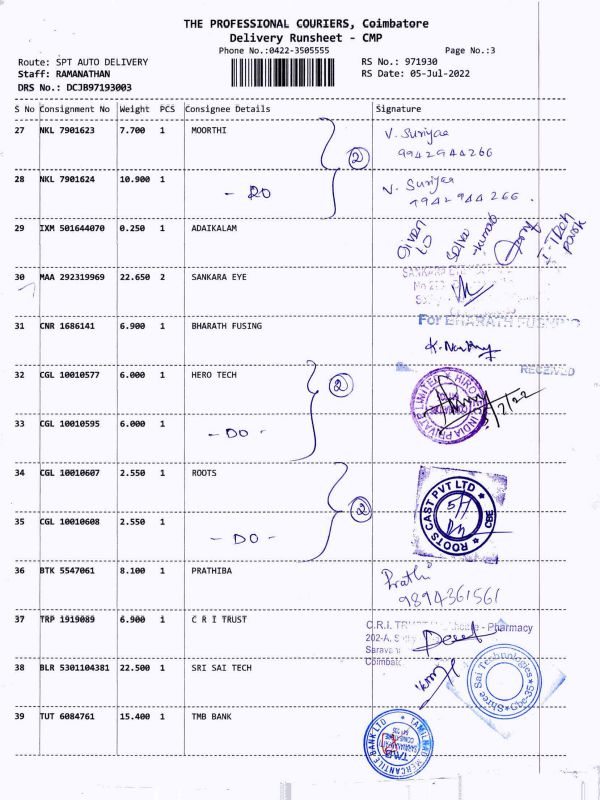 THE PROFESSIONAL COURIERS, Coimbatore
Delivery Runsheet - CMP
Phone No.:0422-3505555
Page No.:3
Route: SPT AUTO DELIVERY
RS No.: 971930
Staff: RAMANATHAN
RS Date: 05-Jul-2022
DRS No.: DCJB97193003
S No Consignment No Weight PCS Consignee Details Signature
27 NKL 7901623 7.700 1 MOORTHI V. Suriyaa
2 9942944266
28 NKL 7901624 10.900 1 V. Suriyaa
9942944266.
29 IXM 501644070 0.250 1 ADAIKALAM Given to Selva kumar I-Tech park
30 MAA 292319969 22.650 2 SANKARA EYE SANKARA EYE
31 CNR 1686141 6.900 1 BHARATH FUSING For BHARATH FUSING
32 CGL 10010577 6.000 1 HERO TECH 2 RECEIVED
INDIA PRIVATE LIMITED
33 CGL 10010595 6.000 1 - DO -
34 CGL 10010607 2.550 1 ROOTS ROOTS CAST PVT LTD CBE
2 5/7
35 CGL 10010608 2.550 1 - DO -
36 BTK 5547061 8.100 1 PRATHIBA Prathi
9894361561
37 TRP 1919089 6.900 1 C R I TRUST C.R.I. - Pharmacy
202-A,
38 BLR 5301104381 22.500 1 SRI SAI TECH Shree Sai Technologies Cbe-35
39 TUT 6084761 15.400 1 TMB BANK TAMILNAD MERCANTILE BANK LTD
TMB